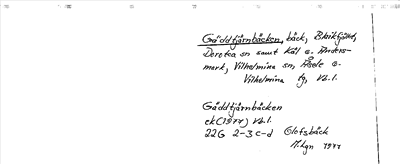 Gäddtjärnbäcken, bäck, Blaikfjället,
Dorotea sn samt Kål o. Anders-
mark, Vilhelmina sn, Åsele o.
Vilhelmina tg, Vb.l.
Gäddtjärnbäcken
ek (1977) Vb.l.
22G 2-3 c-d Olofsbäck
1977